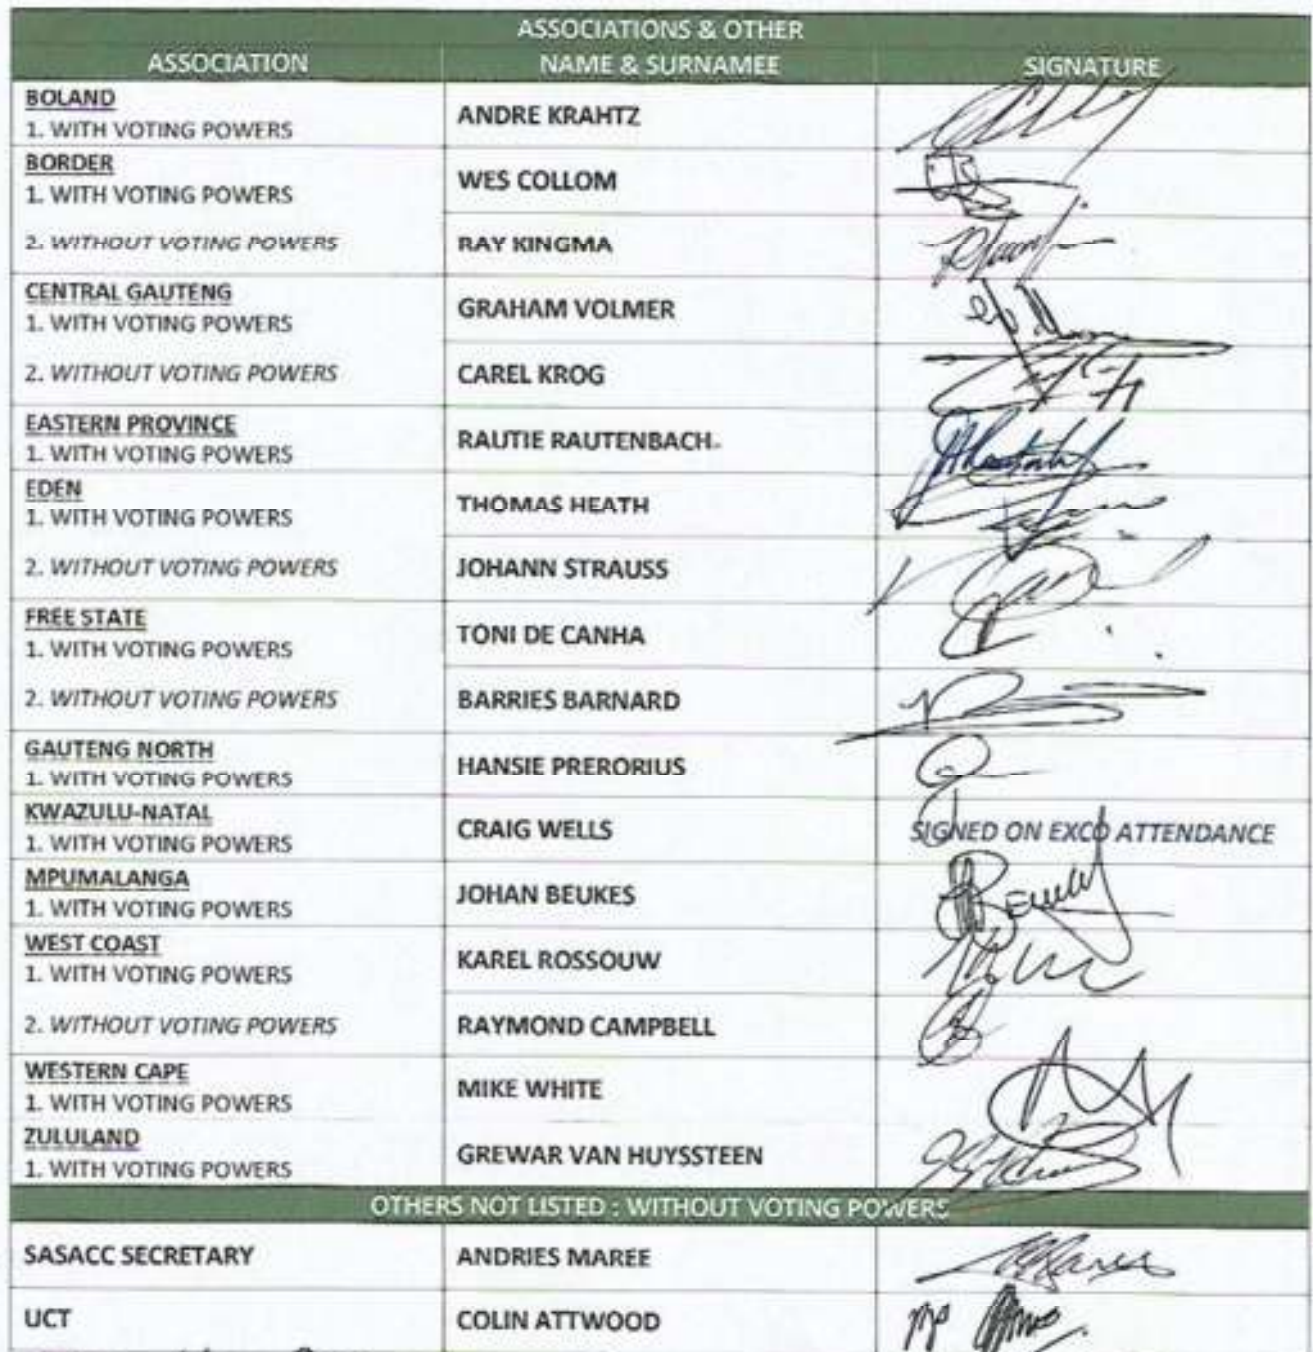 ASSOCIATIONS & OTHER
ASSOCIATION NAME & SURNAMEE SIGNATURE
BOLAND
1. WITH VOTING POWERS ANDRE KRAHTZ
BORDER
1. WITH VOTING POWERS WES COLLOM
2. WITHOUT VOTING POWERS RAY KINGMA
CENTRAL GAUTENG
1. WITH VOTING POWERS GRAHAM VOLMER
2. WITHOUT VOTING POWERS CAREL KROG
EASTERN PROVINCE
1. WITH VOTING POWERS RAUTIE RAUTENBACH.
EDEN
1. WITH VOTING POWERS THOMAS HEATH
2. WITHOUT VOTING POWERS JOHANN STRAUSS
FREE STATE
1. WITH VOTING POWERS TONI DE CANHA
2. WITHOUT VOTING POWERS BARRIES BARNARD
GAUTENG NORTH
1. WITH VOTING POWERS HANSIE PRERORIUS
KWAZULU-NATAL
1. WITH VOTING POWERS CRAIG WELLS SIGNED ON EXCO ATTENDANCE
MPUMALANGA
1. WITH VOTING POWERS JOHAN BEUKES
WEST COAST
1. WITH VOTING POWERS KAREL ROSSOUW
2. WITHOUT VOTING POWERS RAYMOND CAMPBELL
WESTERN CAPE
1. WITH VOTING POWERS MIKE WHITE
ZULULAND
1. WITH VOTING POWERS GREWAR VAN HUYSSTEEN
OTHERS NOT LISTED : WITHOUT VOTING POWERS
SASACC SECRETARY ANDRIES MAREE
UCT COLIN ATTWOOD